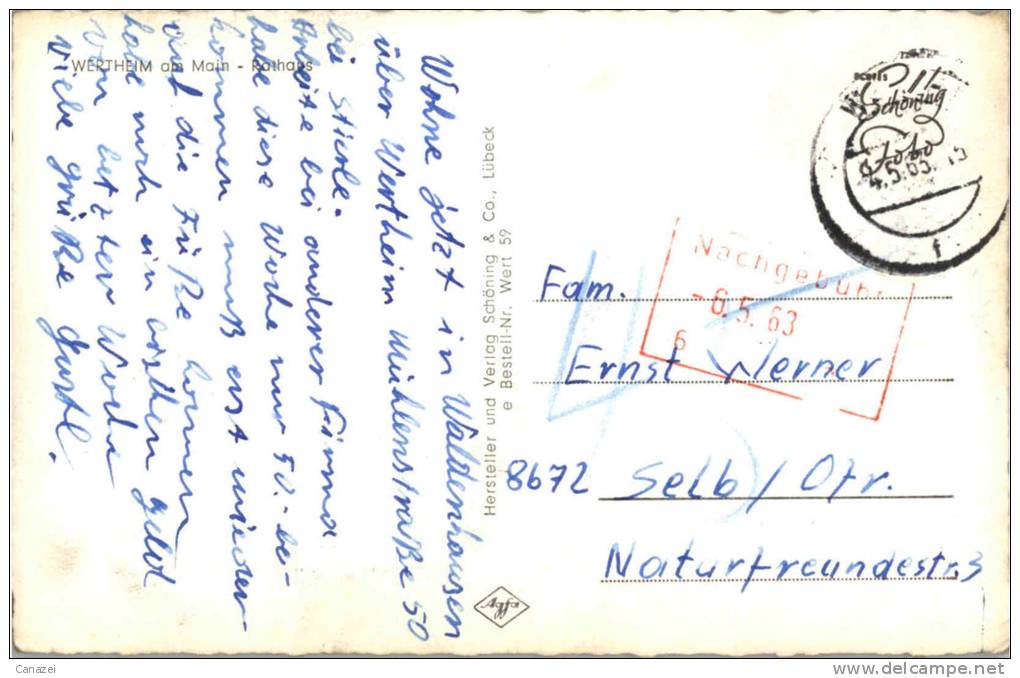 WERTHEIM am Main - Rathaus
Wohne jetzt in Waldenhausen
über Wertheim Mühlenstraße 50
bei Stierle.
Arbeite bei anderer Firma
habe diese Woche nur 50.- be-
kommen muß erst wieder
auf die Füße kommen
habe noch ein bißchen Geld
von letzter Woche
Viele Grüße Gustl.
Hersteller und Verlag Schöning & Co., Lübeck
e Bestell-Nr. Wert 59
Agfa
Schöning
Foto
4.5.63
f
Nachgebühr
-6.5.63
6
Fam.
Ernst Werner
8672 Selb/Ofr.
Naturfreundestr. 3
Canazei
www.delcampe.net